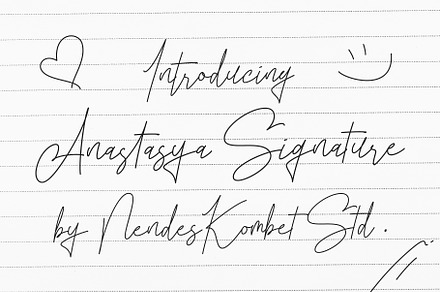 Introducing
Anastasya Signature
by NendesKombet Std.